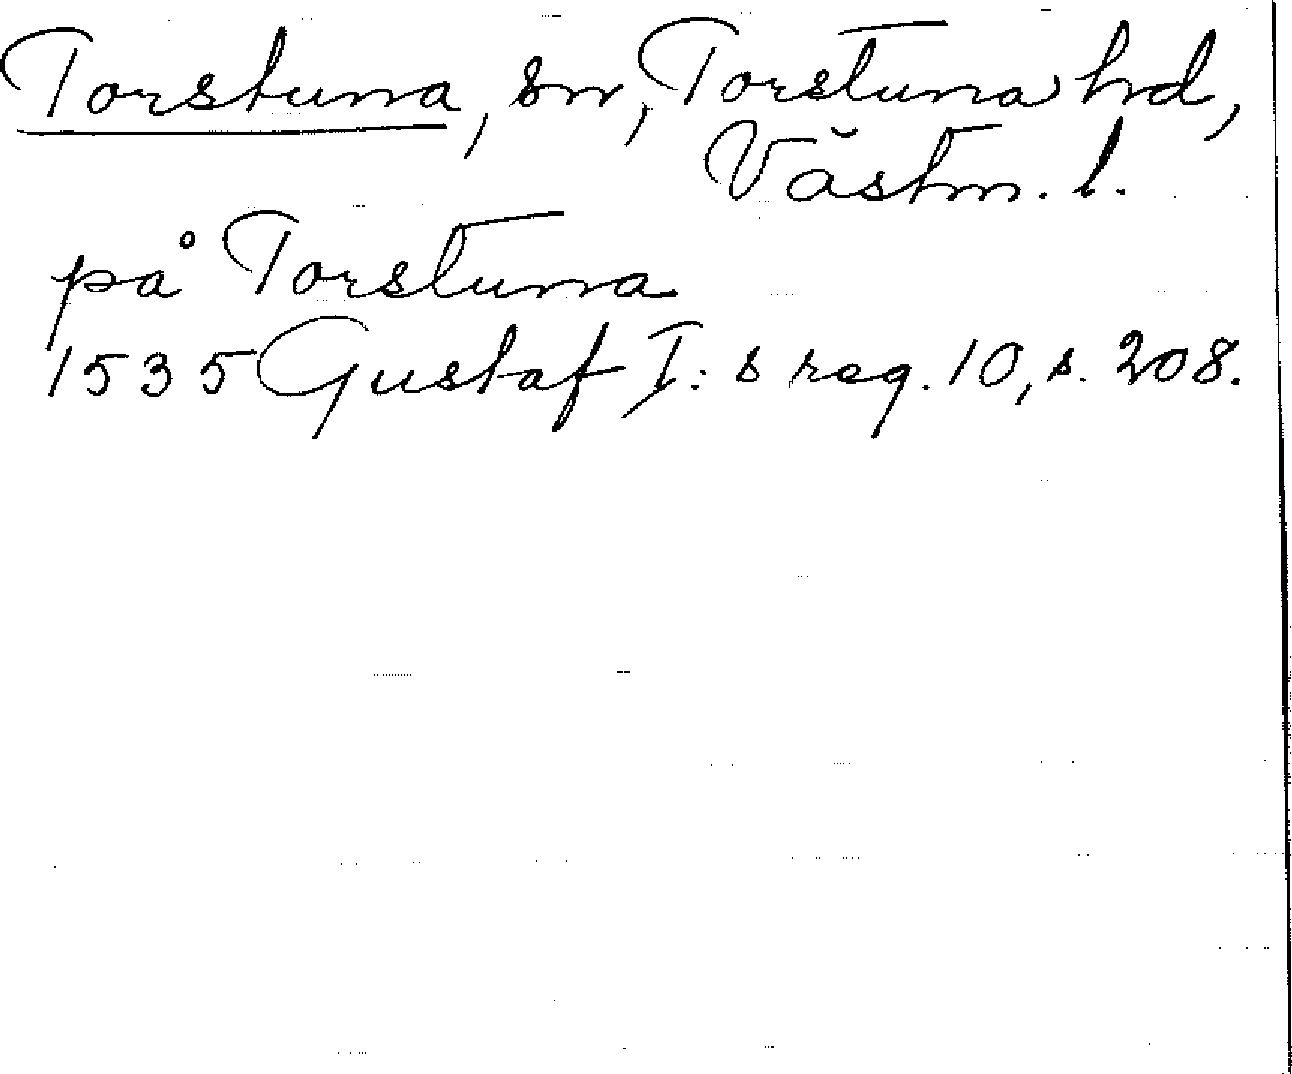 Torstuna, sn, Torstuna hd,
Västm. l.
på Torstuna
1535 Gustaf I:s reg. 10, s. 208.